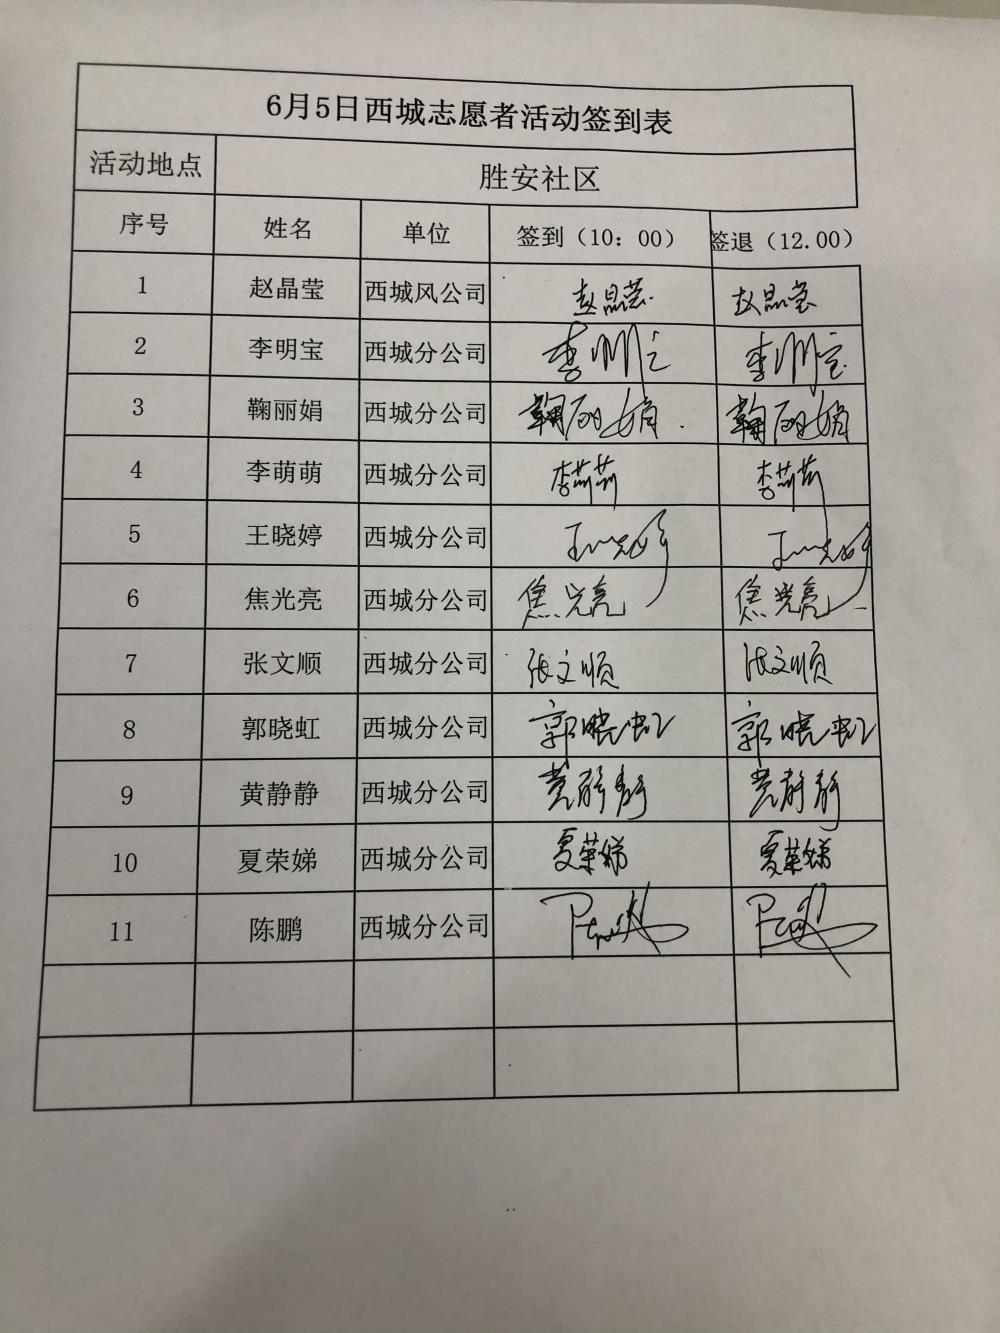 6月5日西城志愿者活动签到表
活动地点 胜安社区
序号 姓名 单位 签到（10：00） 签退（12.00）
1 赵晶莹 西城风公司 赵晶莹 赵晶莹
2 李明宝 西城分公司 李明宝 李明宝
3 鞠丽娟 西城分公司 鞠丽娟 鞠丽娟
4 李萌萌 西城分公司 李萌萌 李萌萌
5 王晓婷 西城分公司 王晓婷 王晓婷
6 焦光亮 西城分公司 焦光亮 焦光亮
7 张文顺 西城分公司 张文顺 张文顺
8 郭晓虹 西城分公司 郭晓虹 郭晓虹
9 黄静静 西城分公司 黄静静 黄静静
10 夏荣娣 西城分公司 夏荣娣 夏荣娣
11 陈鹏 西城分公司